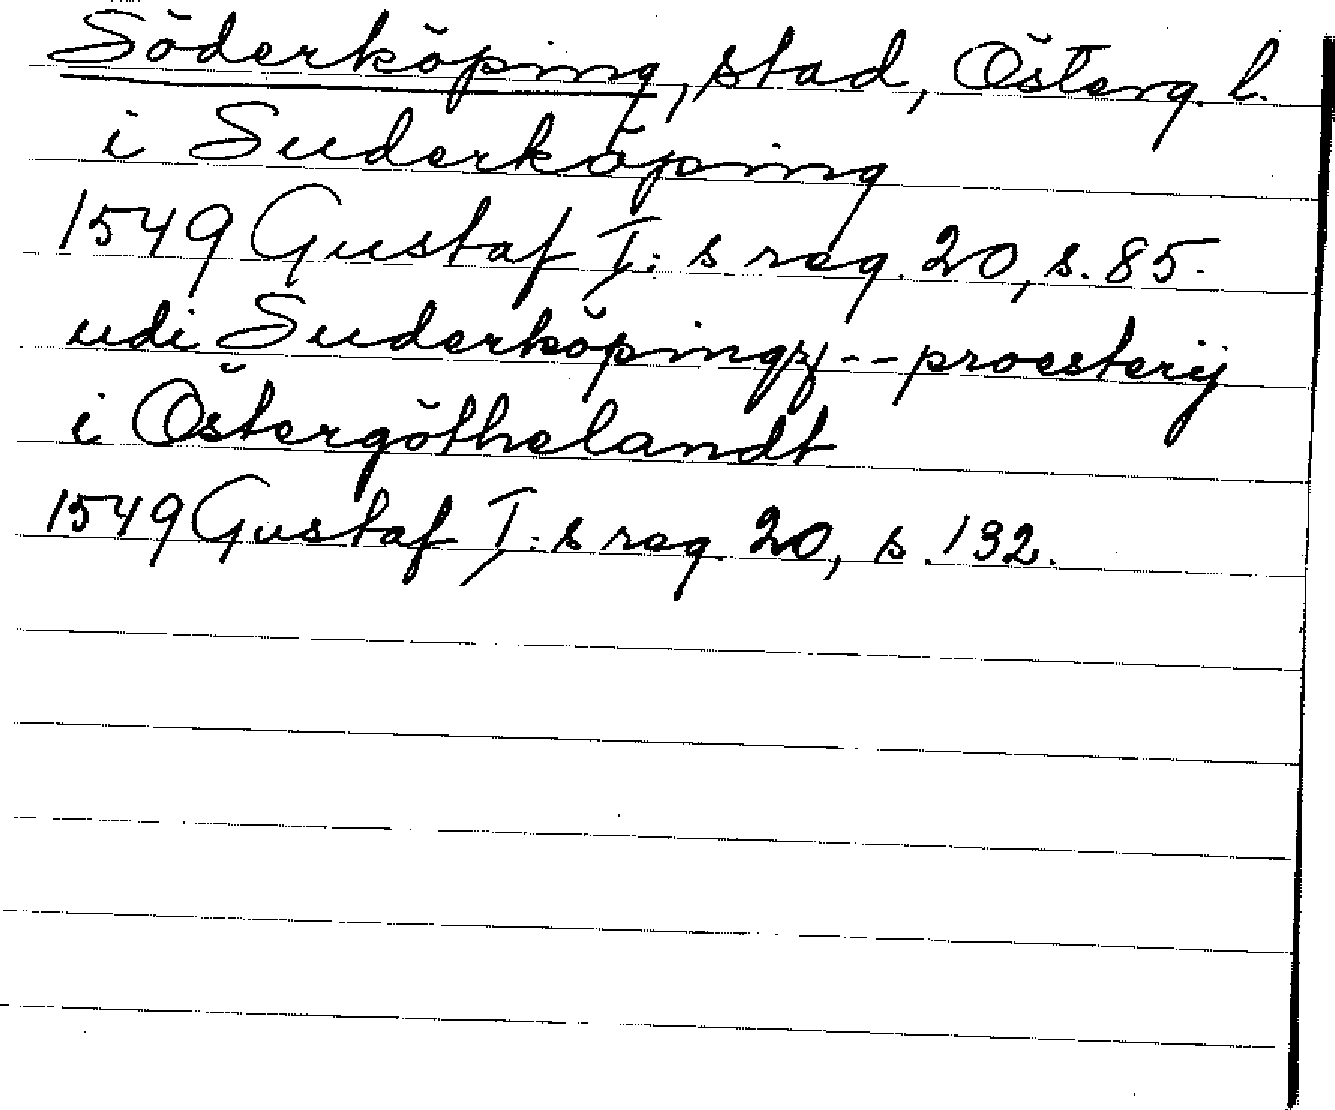 Söderköping, stad, Österg. l.
i Suderköping
1549 Gustaf I:s reg. 20, s. 85.
udi Suderköpingz -- proesterij
i Östergöthelandt
1549 Gustaf I:s reg. 20, s. 132.